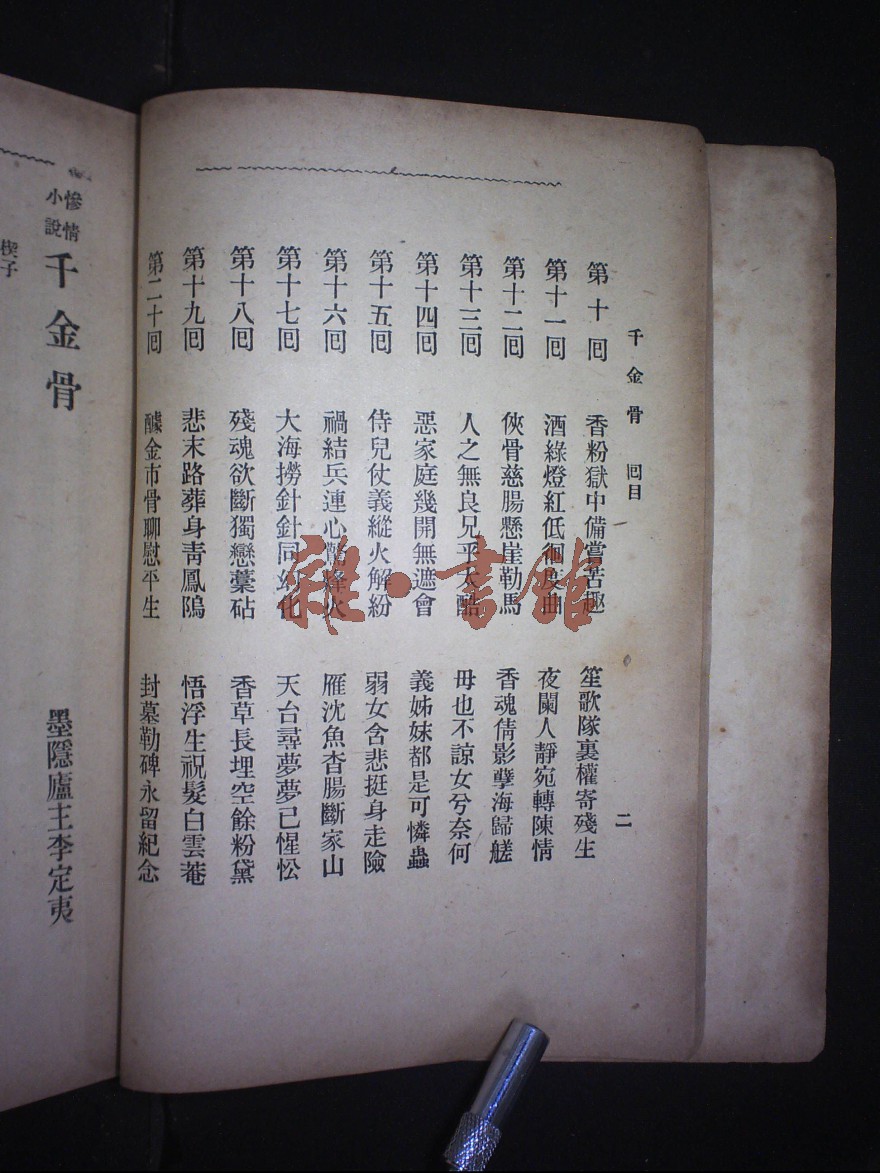 千金骨 回目 二
第十回 香粉獄中備嘗苦趣 笙歌隊裏權寄殘生
第十一回 酒綠燈紅低徊度曲 夜闌人靜宛轉陳情
第十二回 俠骨慈腸懸崖勒馬 香魂倩影孽海歸艖
第十三回 人之無良兄乎太酷 毋也不諒女兮奈何
第十四回 惡家庭幾開無遮會 義姊妹都是可憐蟲
第十五回 侍兒仗義縱火解紛 弱女含悲挺身走險
第十六回 禍結兵連心驚烽火 雁沈魚杳腸斷家山
第十七回 大海撈針針同幻化 天台尋夢夢已惺忪
第十八回 殘魂欲斷獨戀藁砧 香草長埋空餘粉黛
第十九回 悲末路葬身靑鳳隖 悟浮生祝髮白雲菴
第二十回 醵金市骨聊慰平生 封墓勒碑永留紀念
慘情小說 千金骨
墨隱廬主李定夷
楔子
雜·書館